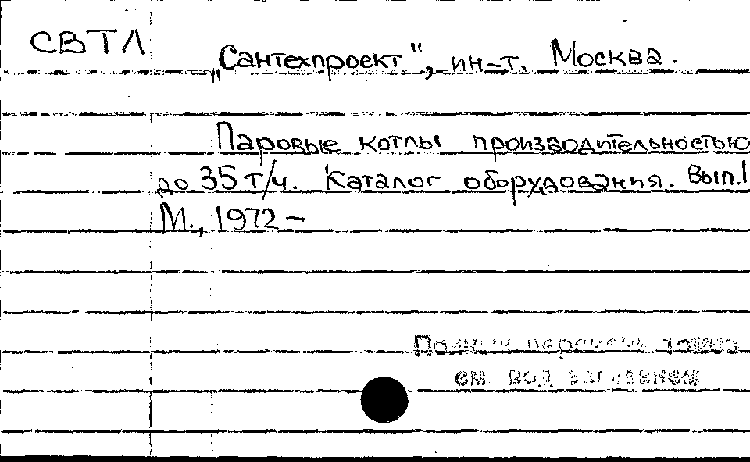 СВТЛ
„Сантехпроект", ин-т. Москва.
Паровые котлы производительностью
до 35 т/ч. Каталог оборудования. Вып.1
М., 1972 –
см. под заглавием